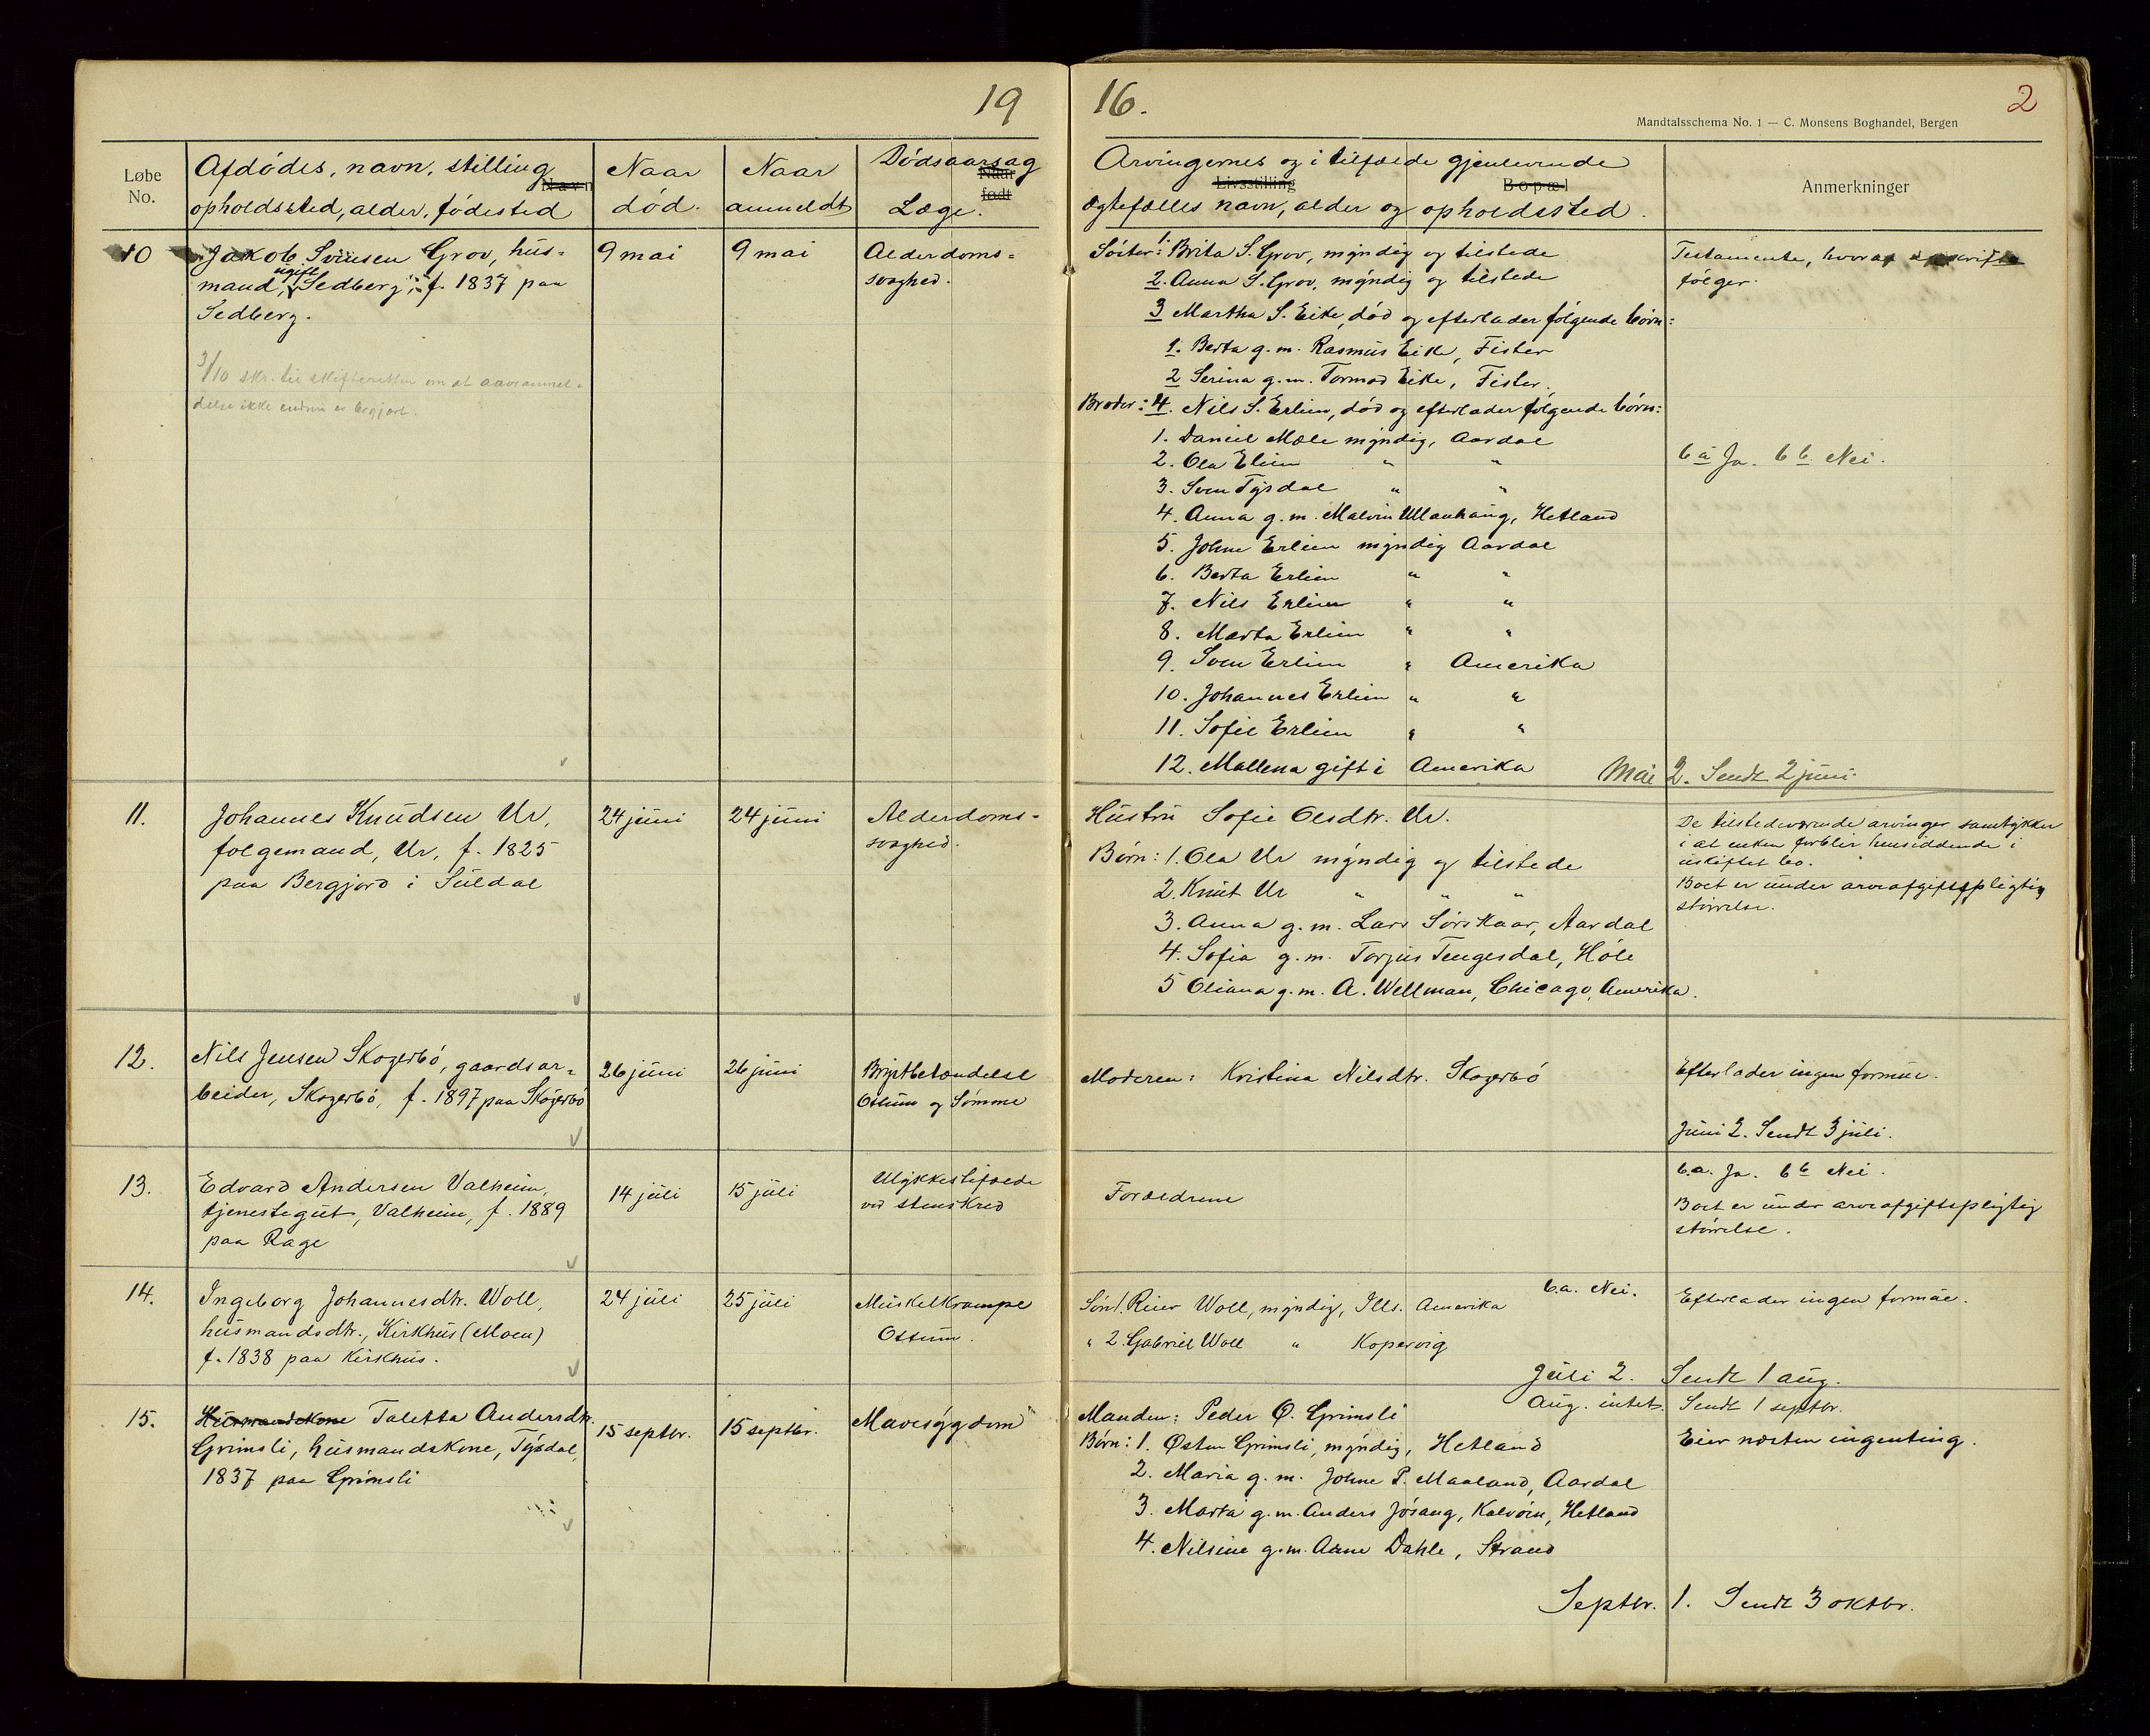 19
Løbe No.
Afdødes, navn, stilling
Navn
opholdssted, alder, fødested
Naar død.
Naar anmeldt
Dødsaarsag
Naar født
Læge.
10
Jakob Svensen Grov, hus-
ugift
mand, Sedberg, f. 1837 paa
Sedberg.
3/10 skr. til skifteretten om at arveanmel-
delse ikke endnu er begjort.
9 mai
9 mai
Alderdoms-
svaghed.
11.
Johannes Knudsen Ur,
folgemand, Ur, f. 1825
paa Bergjord i Suldal
24 juni
24 juni
Alderdoms-
svaghed.
12.
Nils Jensen Skogerbó, gaardsar-
beider, Skogerbó, f. 1897 paa Skogerbó
26 juni
26 juni
Brystbetændelse
Ottum og Sómme
13.
Edvard Andersen Valheim,
tjenestegut, Valheim, f. 1889
paa Rage
14 juli
15 juli
Ulykkestifælde
ved stenskred
14.
Ingeborg Johannesdtr. Woll,
husmandsdtr., Kirkhus (Moen)
f. 1838 paa Kirkhus.
24 juli
25 juli
Muskelkrampe
Ottum.
15.
Husmandskone Taletta Andersdtr.
Grimsli, husmandskone, Tysdal,
1837 paa Grimsli
15 septbr.
15 septbr.
Mavesygdom
16.
2
Mandtalsschema No. 1 — C. Monsens Boghandel, Bergen
Arvingernes og i tilfælde gjenlevende
Livsstilling Bopæl
ægtefælles navn, alder og opholdssted.
Anmerkninger
Sóster: 1. Brita S. Grov, myndig og tilstede
2. Anna S. Grov, myndig og tilstede
3 Martha S. Eike, død og efterlader følgende børn:
1. Berta g.m. Rasmus Eike, Fister
2 Serina g.m. Tormod Eike, Fister.
Broder: 4. Nils S. Erlien, død og efterlader følgende børn:
1. Daniel Mæle myndig, Aardal
2. Ola Elien " "
3. Sven Tysdal " "
4. Anna g.m. Malvin Ullanhaug, Hetland
5. Johne Erlien myndig Aardal
6. Berta Erlien " "
7. Nils Erlien " "
8. Marta Erlien " "
9. Sven Erlien " Amerika
10. Johannes Erlien " "
11. Sofie Erlien " "
12. Mallena gift i Amerika
Testamente, hvoraf
følger.
6 a Ja. 6 b. Nei.
Mai 2. Sendt 2 juni.
Hustru Sofie Olsdtr. Ur.
Børn: 1. Ola Ur myndig og tilstede
2. Knut Ur " " "
3. Anna g.m. Lars Sørskaar, Aardal
4. Sofia g.m. Torjus Tengesdal, Høle
5 Oliana g.m. A. Wellman, Chicago, Amerika.
De tilstedeværende arvinger samtykker
i at enken forblir hensiddende i
uskiftet bo.
Boet er under arveafgiftspligtig
størrelse.
Moderen: Kristina Nilsdtr. Skogerbó
Efterlader ingen formue.
Juni 2. Sendt 3 juli.
Forældrene
6.a. Ja. 6 b Nei.
Boet er under arveafgiftspligtig
størrelse.
6.a. Nei.
Søn 1. Reier Woll, myndig, Ills. Amerika
" 2. Gabriel Woll " Kopervig
Efterlader ingen formue.
Juli 2. Sendt 1 aug.
Aug. intet. Sendt 1 septbr.
Manden: Peder Ø. Grimsli
Børn: 1. Østen Grimsli, myndig, Hetland
2. Maria g.m. Johne P. Maaland, Aardal
3. Marta g.m. Anders Jøsang, Kalvøen, Hetland
4. Nilsine g.m. Anne Dahle, Strand
Eier næsten ingenting.
Septbr. 1. Sendt 3 oktbr.